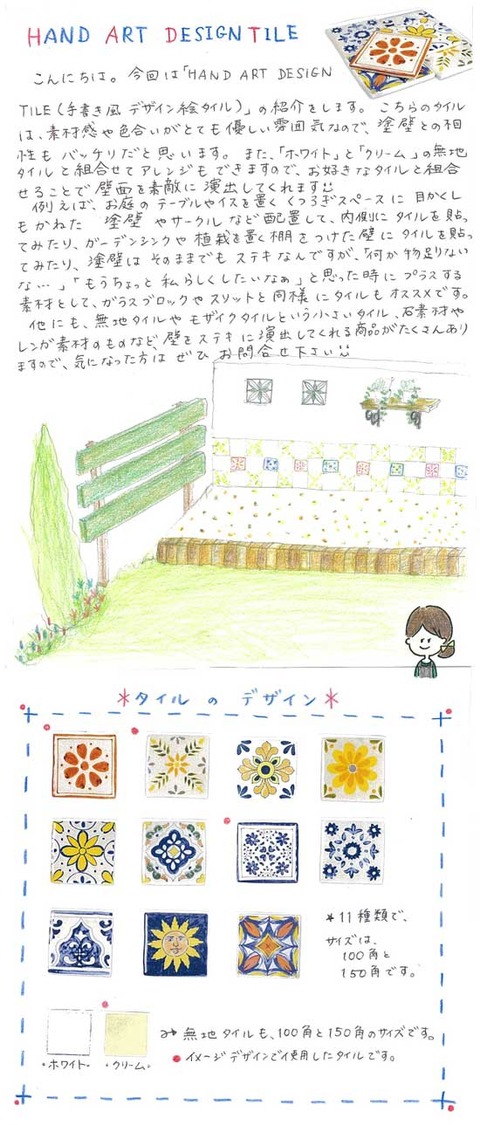 HAND ART DESIGN TILE
こんにちは。今回は「HAND ART DESIGN
TILE(手書き風デザイン絵タイル)」の紹介をします。こちらのタイル
は、素材感や色合いがとても優しい雰囲気なので、塗壁との相
性もバッチリだと思います。また、「ホワイト」と「クリーム」の無地
タイルと組合せてアレンジもできますので、お好きなタイルと組合
せることで壁面を素敵に演出してくれます
例えば、お庭のテーブルやイスを置くくつろぎスペースに目かくし
もかねた 塗壁やサークルなど配置して、内側にタイルを貼っ
てみたり、ガーデンシンクや植栽を置く棚をつけた壁にタイルを貼っ
てみたり、塗壁はそのままでもステキなんですが、「何か物足りない
な…」「もうちょっと私らしくしたいなぁ」と思った時にプラスする
素材として、ガラスブロックやスリットと同様にタイルもオススメです。
他にも、無地タイルやモザイクタイルという小さいタイル、石素材や
レンガ素材のものなど壁をステキに演出してくれる商品がたくさんあり
ますので、気になった方はぜひお問合せ下さい
*タイルのデザイン*
*11種類で、
サイズは、
100角と
150角です。
無地タイルも、100角と150角のサイズです。
・ホワイト・
・クリーム・
●イメージデザインで使用したタイルです。